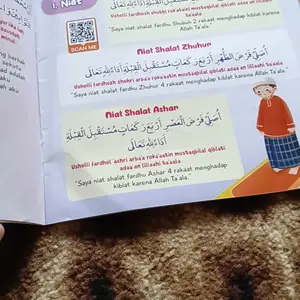 1. Niat
SCAN ME
"Saya niat shalat fardhu Shubuh 2 rakaat menghadap kiblat karena
Allah Ta'ala."
Niat Shalat Zhuhur
أُصَلِّي فَرْضَ الظُّهْرِ أَرْبَعَ رَكَعَاتٍ مُسْتَقْبِلَ الْقِبْلَةِ أَدَاءً لِلّٰهِ تَعَالَى
Usholli fardhozh zhuhri arba'a roka'aatin mustaqbilal qiblati adaa an lillaahi ta'aala
"Saya niat shalat fardhu Zhuhur 4 rakaat menghadap kiblat karena Allah Ta'ala."
Niat Shalat Ashar
أُصَلِّي فَرْضَ الْعَصْرِ أَرْبَعَ رَكَعَاتٍ مُسْتَقْبِلَ الْقِبْلَةِ
أَدَاءً لِلّٰهِ تَعَالَى
Usholli fardhol 'ashri arba'a roka'aatin mustaqbilal qiblati
adaa an lillaahi ta'aala
"Saya niat shalat fardhu Ashar 4 rakaat menghadap
kiblat karena Allah Ta'ala."